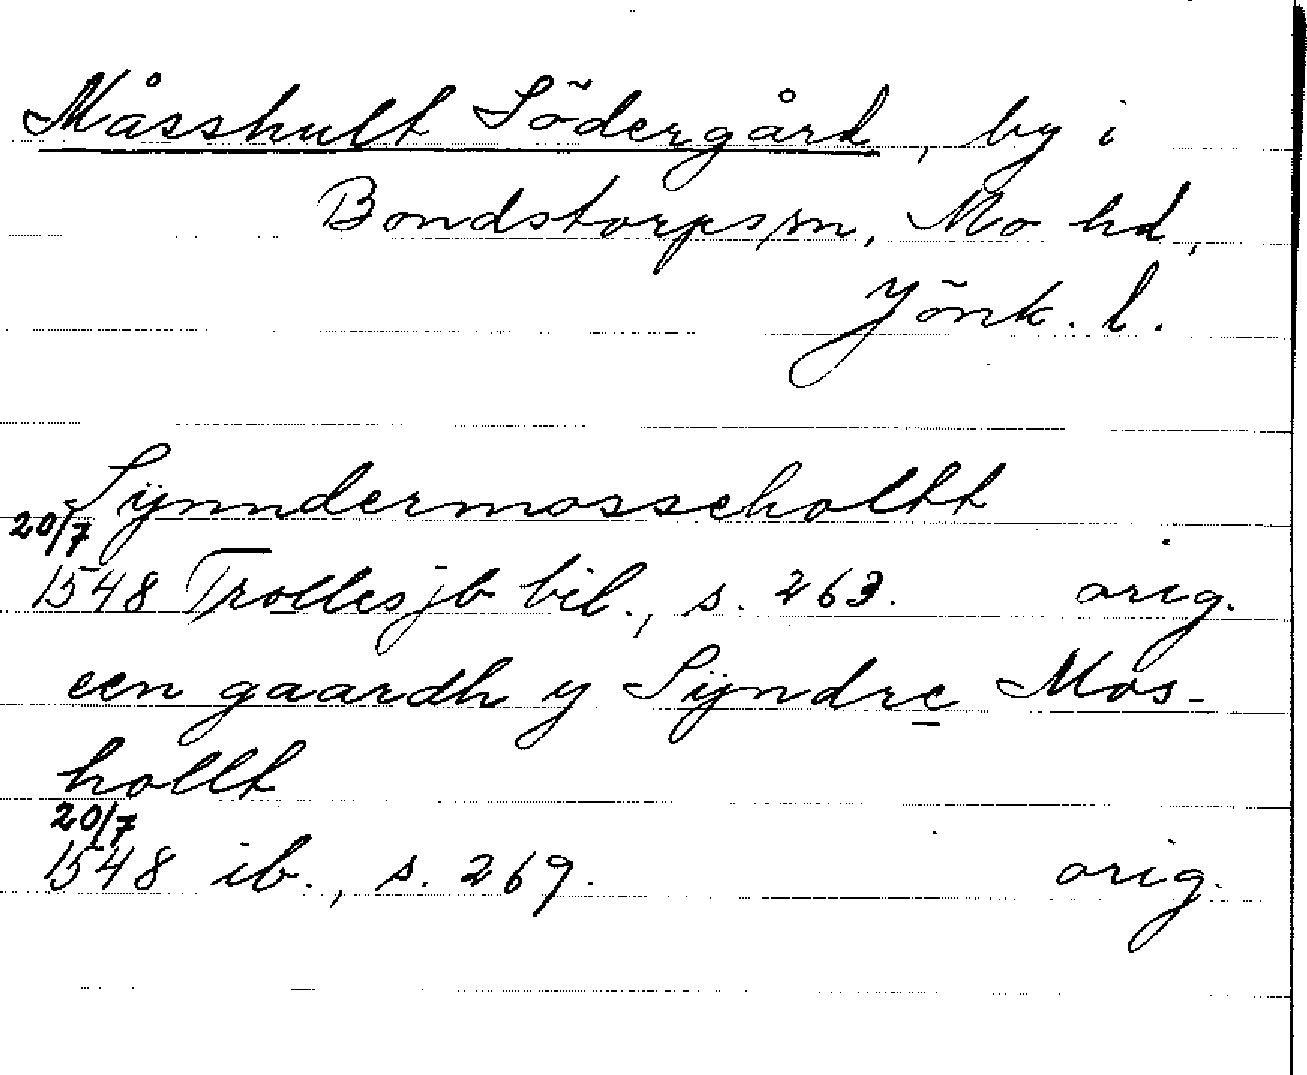 Måsshult Södergård, by i
Bondstorps sn, Mo hd,
Jönk. l.
Sÿnndermosscholtt
20/7
1548 Trolles jb bil., s. 263. orig.
een gaardh y Sÿndre Mos-
hollt
20/7
1548 ib., s. 269. orig.